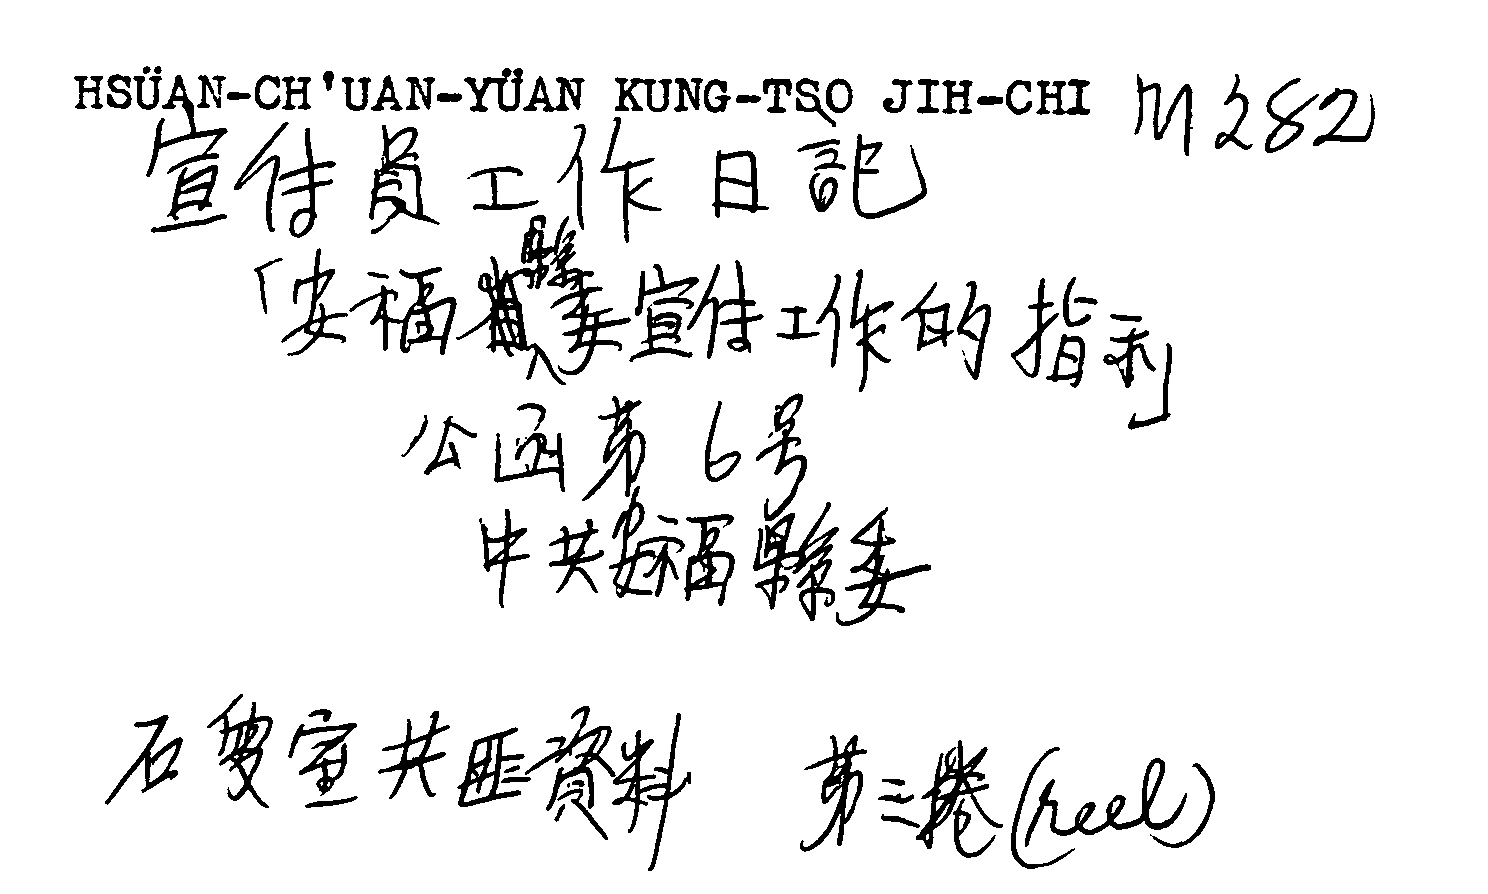 HSÜAN-CH'UAN-YÜAN KUNG-TSO JIH-CHI M282
宣传員工作日記
「安福縣委宣传工作的指示」
公函第6号
中共安福縣委
石叟室共匪資料 第三捲(reel)